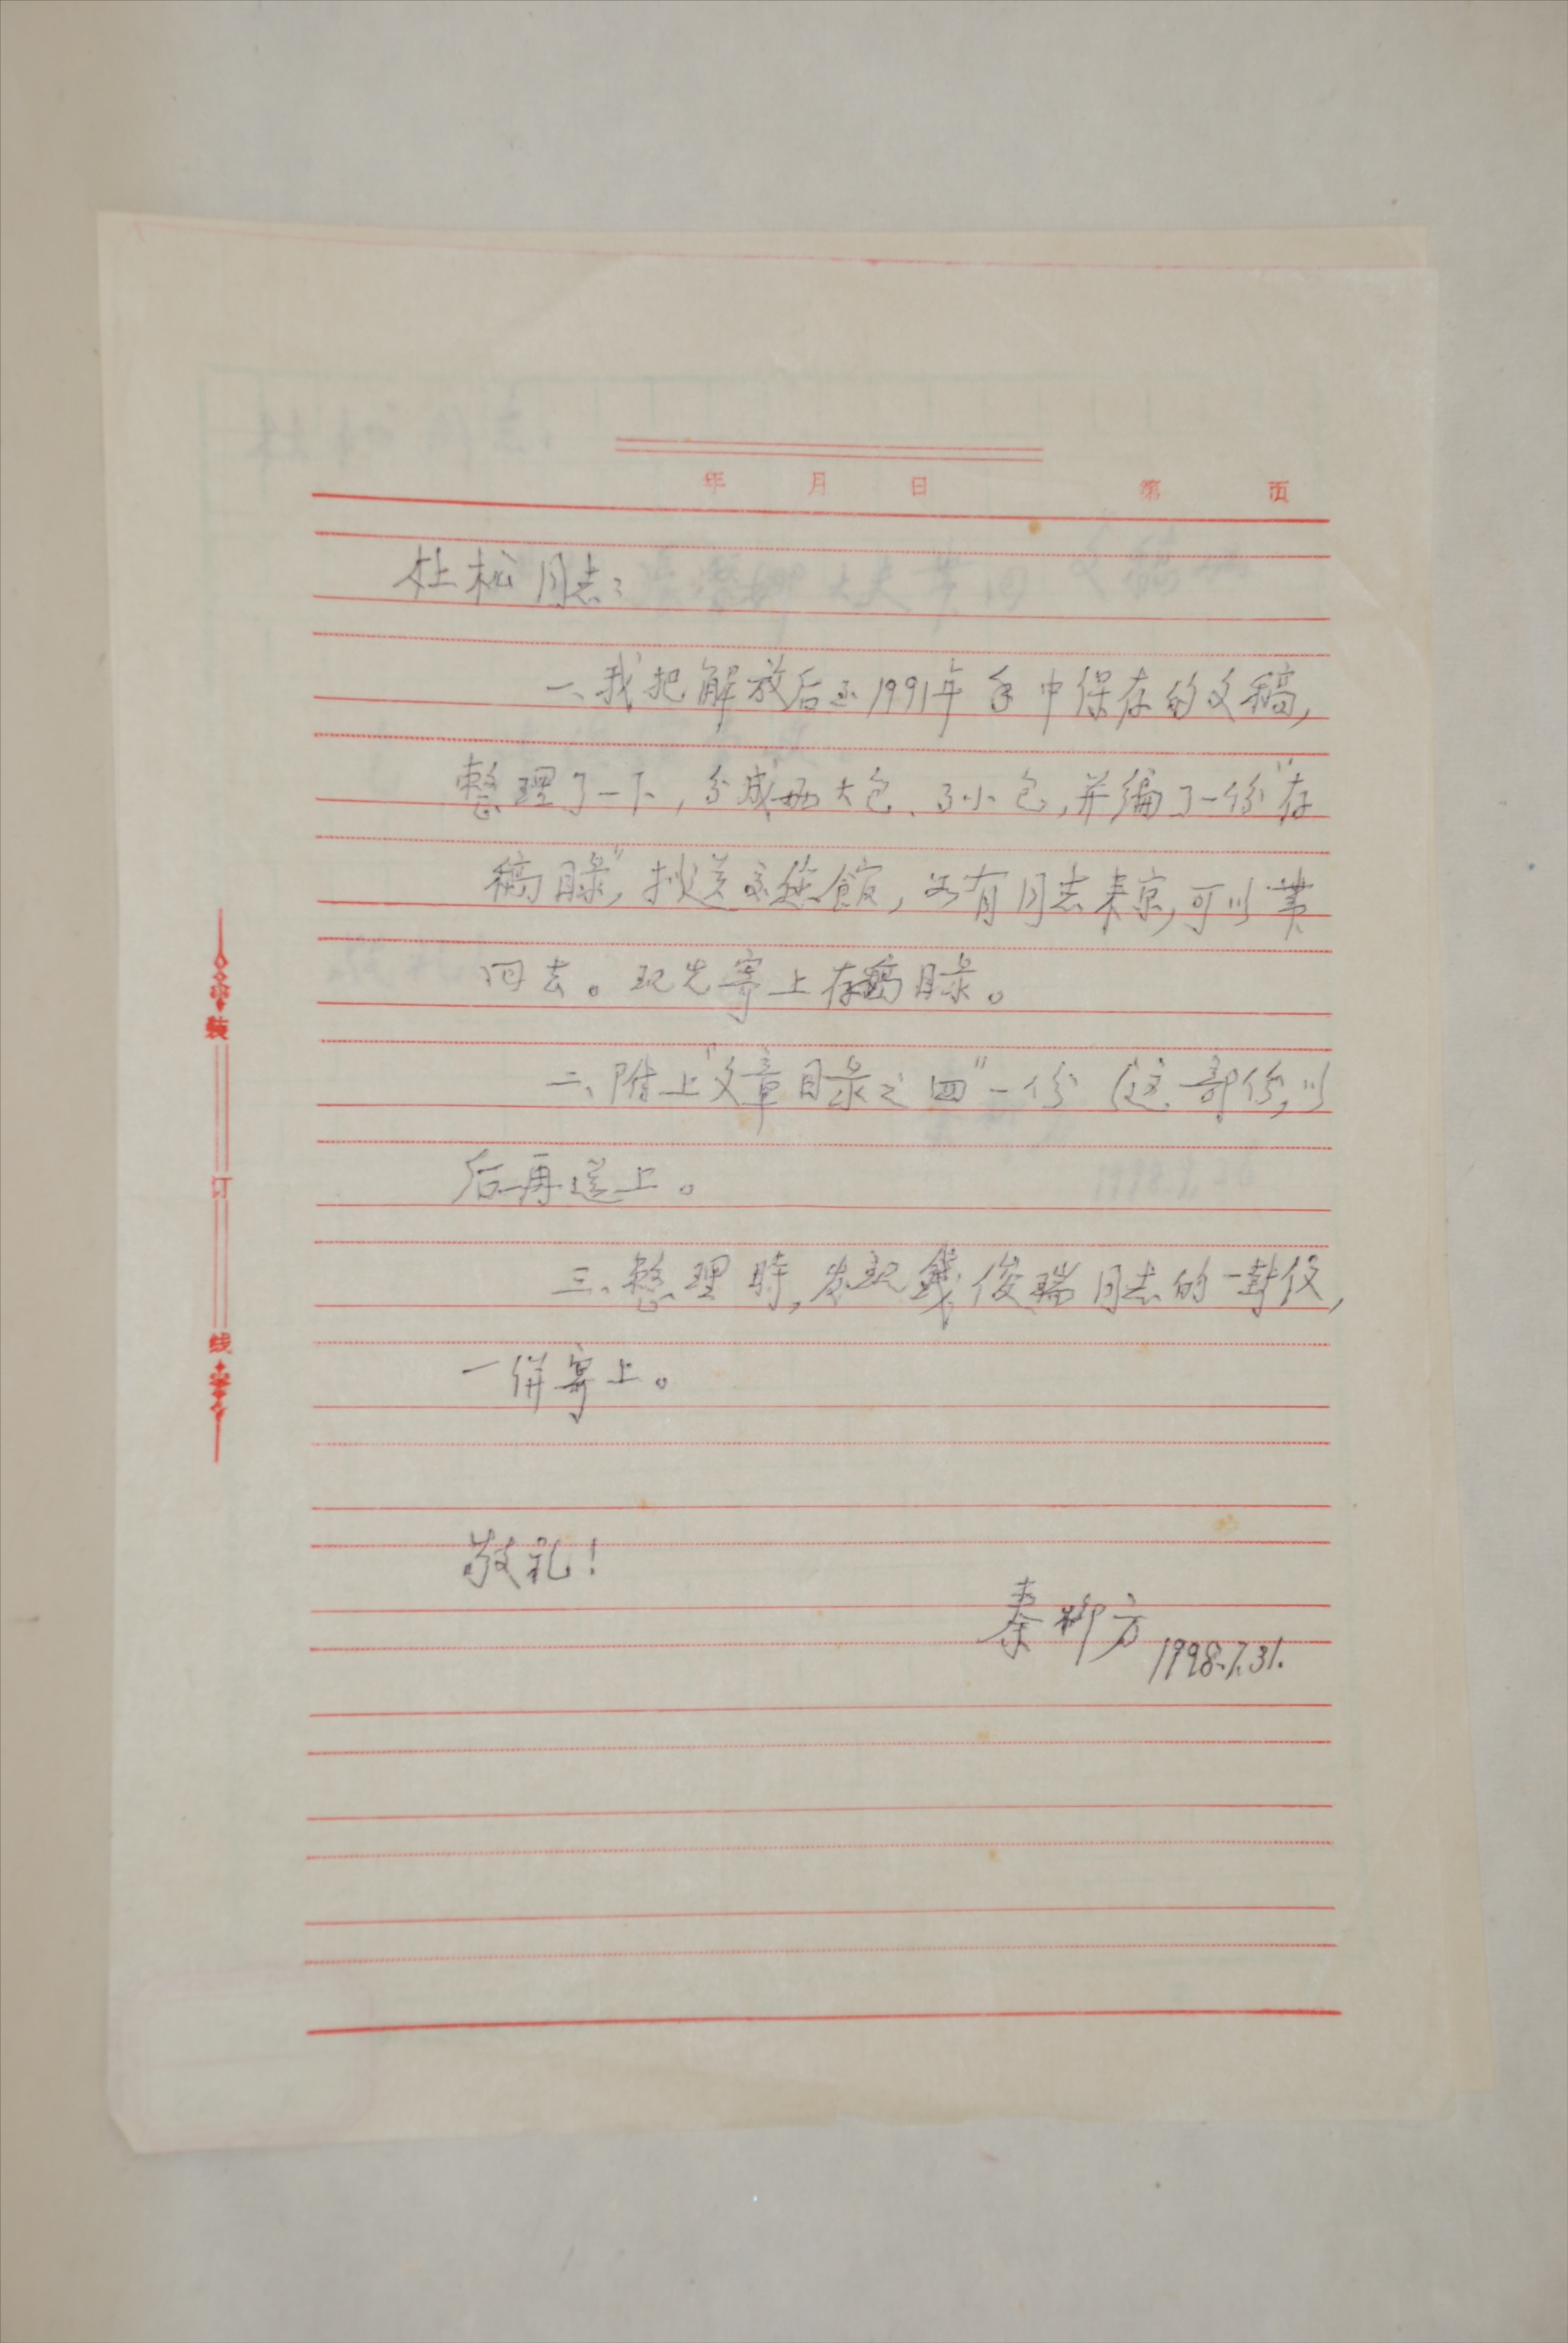 年 月 日 第 页
杜松同志:
一、我把解放后至1991年手中保存的文稿,
整理了一下,分成两大包、3小包,并编了一份“存
稿目录”,拟送交您馆,如有同志来京,可以带
回去。现先寄上存稿目录。
二、附上“文章目录之四”一份(这部份,以
后再送上。
三、整理時,发现錢俊瑞同志的一封信,
一併寄上。
敬礼!
秦柳方
1998.7.31.
装
订
线